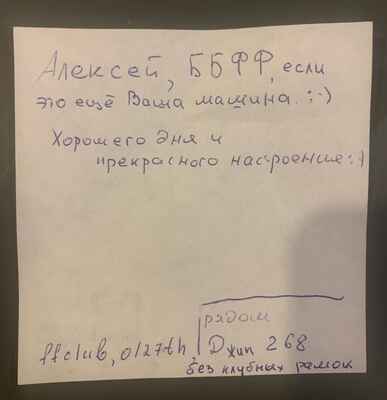 Алексей, ББФФ, если
это ещё Ваша машина. :-)
Хорошего дня и
прекрасного настроение :-)
рядом
ffclub, 0127th, Джип 268
без клубных рамок